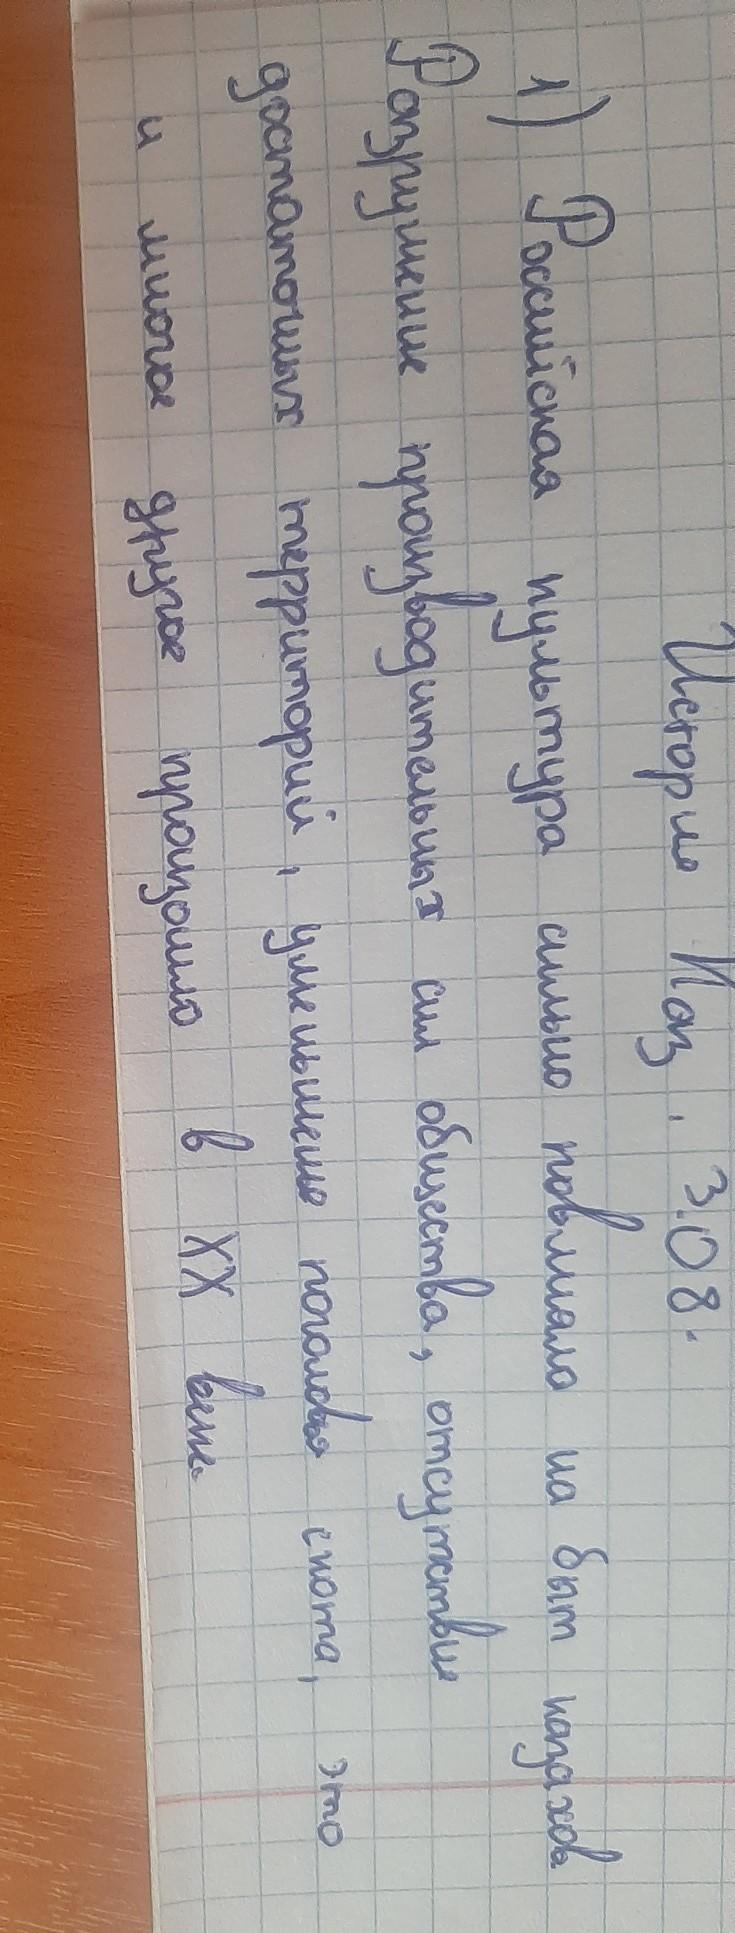 История Каз. 3.08.
1) Российская культура сильно повлияло на быт казахов
Разрушение производительных сил общества, отсутствие
достаточных территорий, уменьшение поголовья скота, это
и многое другое произошло в XX веке